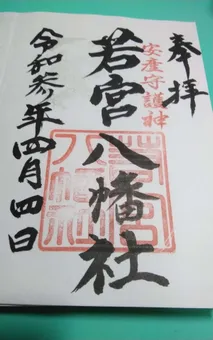 奉拝
安産守護神
若宮八幡社
令和参年四月四日